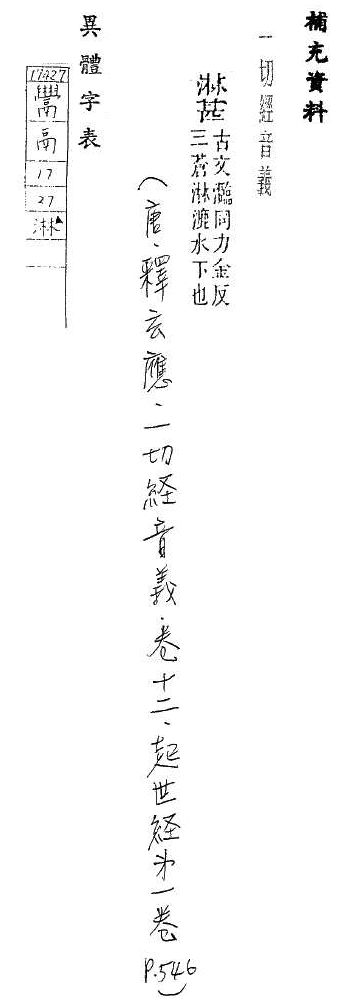 補充資料
一切經音義
淋甚 古文灕同力金反
三蒼淋漉水下也
(唐.釋玄應.一切経音義.卷十二.起世経第一卷 P.546)
異體字表
17427
鬲
17
27
淋